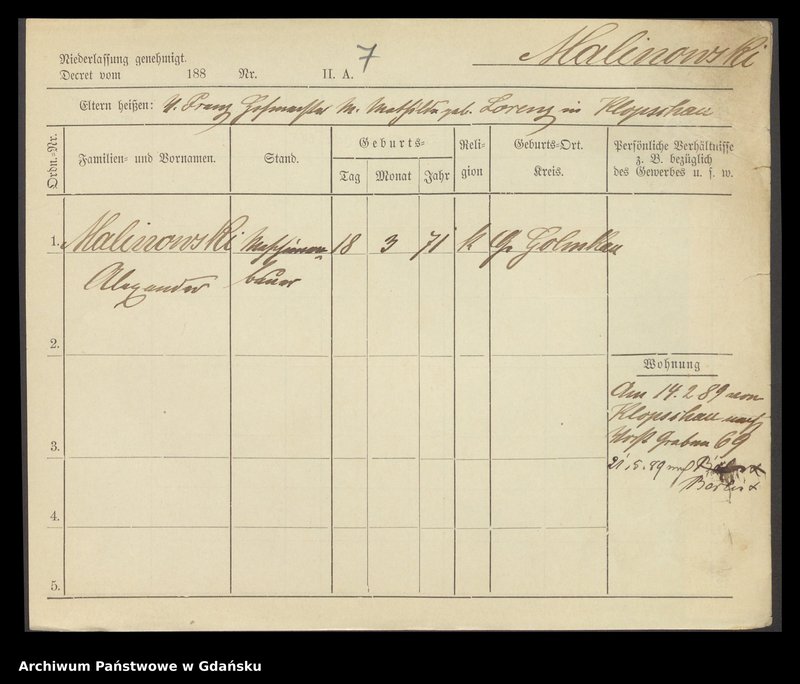 Malinowski
7
Niederlassung genehmigt.
Decret vom 188 Nr. II. A.
Eltern heißen: V. Franz Hofmeister M. Mathilde geb. Lorenz in Klopschau
Ordn.-Nr.
Familien- und Vornamen.
Stand.
Geburts-
Tag
Monat
Jahr
Reli-
gion
Geburts-Ort.
Kreis.
Persönliche Verhältnisse
z. B. bezüglich
des Gewerbes u. s. w.
1. Malinowski Maschinen- 18 3 71 k Gr Golmkau
Alexander bauer
2.
3.
4.
5.
Wohnung
Am 14.2 89 von
Klopschau nach
Graben 69
21.5.89 nach
Berlin x
Archiwum Państwowe w Gdańsku